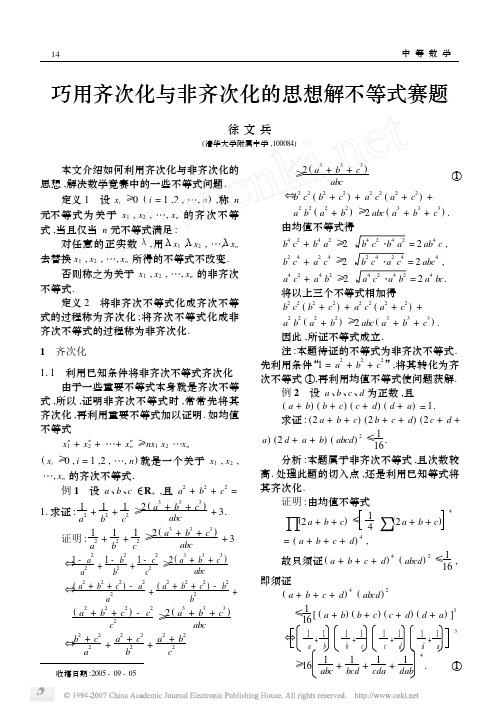 14
中 等 数 学
巧用齐次化与非齐次化的思想解不等式赛题
徐 文 兵
(清华大学附属中学,100084)
本文介绍如何利用齐次化与非齐次化的
思想,解决数学竞赛中的一些不等式问题.
定义1 设 xᵢ ≥0 ( i = 1 ,2 , …, n) ,称 n
元不等式为关于 x₁ , x₂ , …, xₙ 的齐次不等
式,当且仅当 n 元不等式满足:
对任意的正实数 λ,用λx₁ ,λx₂ , …,λxₙ
去替换 x₁ , x₂ , …, xₙ 所得的不等式不改变.
否则称之为关于 x₁ , x₂ , …, xₙ 的非齐次
不等式.
定义2 将非齐次不等式化成齐次不等
式的过程称为齐次化;将齐次不等式化成非
齐次不等式的过程称为非齐次化.
1 齐次化
1. 1 利用已知条件将非齐次不等式齐次化
由于一些重要不等式本身就是齐次不等
式,所以,证明非齐次不等式时,常常先将其
齐次化,再利用重要不等式加以证明. 如均值
不等式
x₁ⁿ + x₂ⁿ + …+ xₙⁿ ≥nx₁ x₂ …xₙ
( xᵢ ≥0 , i = 1 ,2 , …, n) 就是一个关于 x₁ , x₂ ,
…, xₙ 的齐次不等式.
例1 设 a、b、c ∈R₊ ,且 a² + b² + c² =
1. 求证: 1/a² + 1/b² + 1/c² ≥ 2( a³ + b³ + c³)/abc + 3.
证明: 1/a² + 1/b² + 1/c² ≥ 2( a³ + b³ + c³)/abc + 3
⇔ (1 - a²)/a² + (1 - b²)/b² + (1 - c²)/c² ≥ 2( a³ + b³ + c³)/abc
⇔ (( a² + b² + c²) - a²)/a² + (( a² + b² + c²) - b²)/b² +
(( a² + b² + c²) - c²)/c² ≥ 2( a³ + b³ + c³)/abc
⇔ (b² + c²)/a² + (a² + c²)/b² + (a² + b²)/c²
收稿日期:2005 - 09 - 05
≥ 2( a³ + b³ + c³)/abc ①
⇔b² c² ( b² + c²) + a² c² ( a² + c²) +
a² b² ( a² + b²) ≥2 abc( a³ + b³ + c³) .
由均值不等式得
b⁴ c² + b⁴ a² ≥2 √(b⁴ c² ·b⁴ a²) = 2 ab⁴ c ,
b² c⁴ + a² c⁴ ≥2 √(b² c⁴ ·a² c⁴) = 2 abc⁴ ,
a⁴ c² + a⁴ b² ≥2 √(a⁴ c² ·a⁴ b²) = 2 a⁴ bc.
将以上三个不等式相加得
b² c² ( b² + c²) + a² c² ( a² + c²) +
a² b² ( a² + b²) ≥2 abc( a³ + b³ + c³) .
因此,所证不等式成立.
注:本题待证的不等式为非齐次不等式.
先利用条件“1 = a² + b² + c² ”,将其转化为齐
次不等式 ①,再利用均值不等式使问题获解.
例2 设 a、b、c、d 为正数,且
( a + b) ( b + c) ( c + d) ( d + a) = 1.
求证:(2 a + b + c) (2 b + c + d) (2 c + d +
a) (2 d + a + b) ( abcd)² ≤ 1/16.
分析:本题属于非齐次不等式,且次数较
高. 处理此题的切入点,还是利用已知等式将
其齐次化.
证明:由均值不等式
∏(2 a + b + c) ≤ [ 1/4 ·∑(2 a + b + c) ]⁴
= ( a + b + c + d)⁴ ,
故只须证( a + b + c + d)⁴ ( abcd)² ≤ 1/16 ,
即须证
( a + b + c + d)⁴ ( abcd)²
≤ 1/16 [ ( a + b) ( b + c) ( c + d) ( d + a) ]³
⇔ [ ( 1/a + 1/b ) ( 1/b + 1/c ) ( 1/c + 1/d ) ( 1/d + 1/a ) ]³
≥16 ( 1/abc + 1/bcd + 1/cda + 1/dab )⁴ . ①
© 1994-2007 China Academic Journal Electronic Publishing House. All rights reserved. http://www.cnki.net